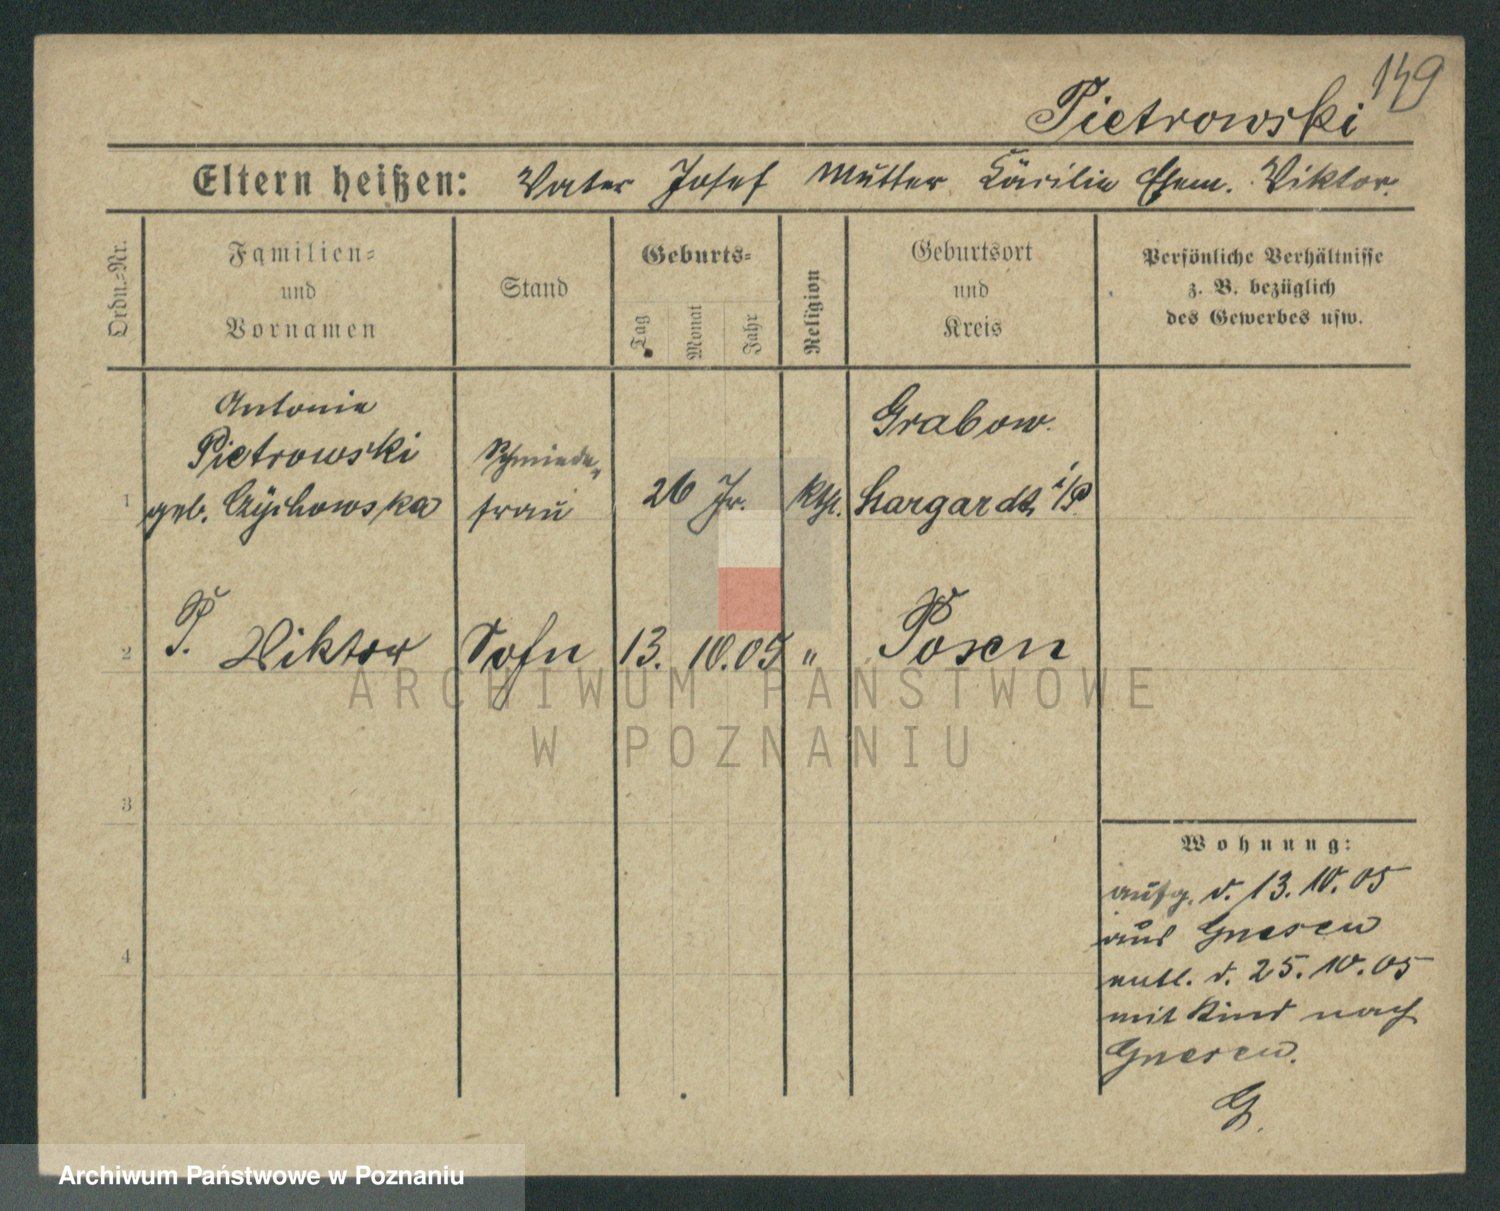 149
Pietrowski
Eltern heißen: Vater Josef Mutter Cäcilie Ehem. Viktor.
Ordn.-Nr.
Familien-
und
Vornamen
Stand
Geburts-
Tag
Monat
Jahr
Religion
Geburtsort
und
Kreis
Persönliche Verhältnisse
z. B. bezüglich
des Gewerbes usw.
Antonie
Pietrowski
geb. Czychowska
Schmiede-
frau
1
26 Jr.
kth.
Grabow.
Stargardt i/P
2
P. Viktor
Sohn
13. 10. 05
"
Posen
ARCHIWUM PAŃSTWOWE
W POZNANIU
3
4
Wohnung:
aufg. d. 13. 10. 05
aus Gnesen
entl. d. 25. 10. 05
mit Kind nach
Gnesen.
G.
Archiwum Państwowe w Poznaniu